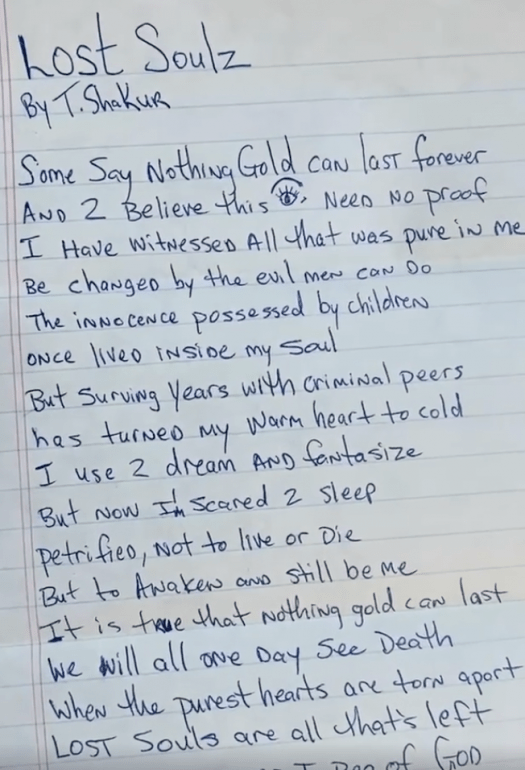 Lost Soulz
By T. Shakur
Some Say Nothing Gold can last forever
AND 2 Believe this 👁, NEED NO proof
I Have witnessed All that was pure in me
Be changed by the evil men can Do
The innocence possessed by children
ONCE lived inside my soul
But Surving Years with criminal peers
has turned my warm heart to cold
I use 2 dream AND fantasize
But now I'm scared 2 sleep
petrified, Not to live or Die
But to Awaken and still be me
It is true that nothing gold can last
We will all one Day See Death
When the purest hearts are torn apart
LOST Souls are all that's left
of GOD